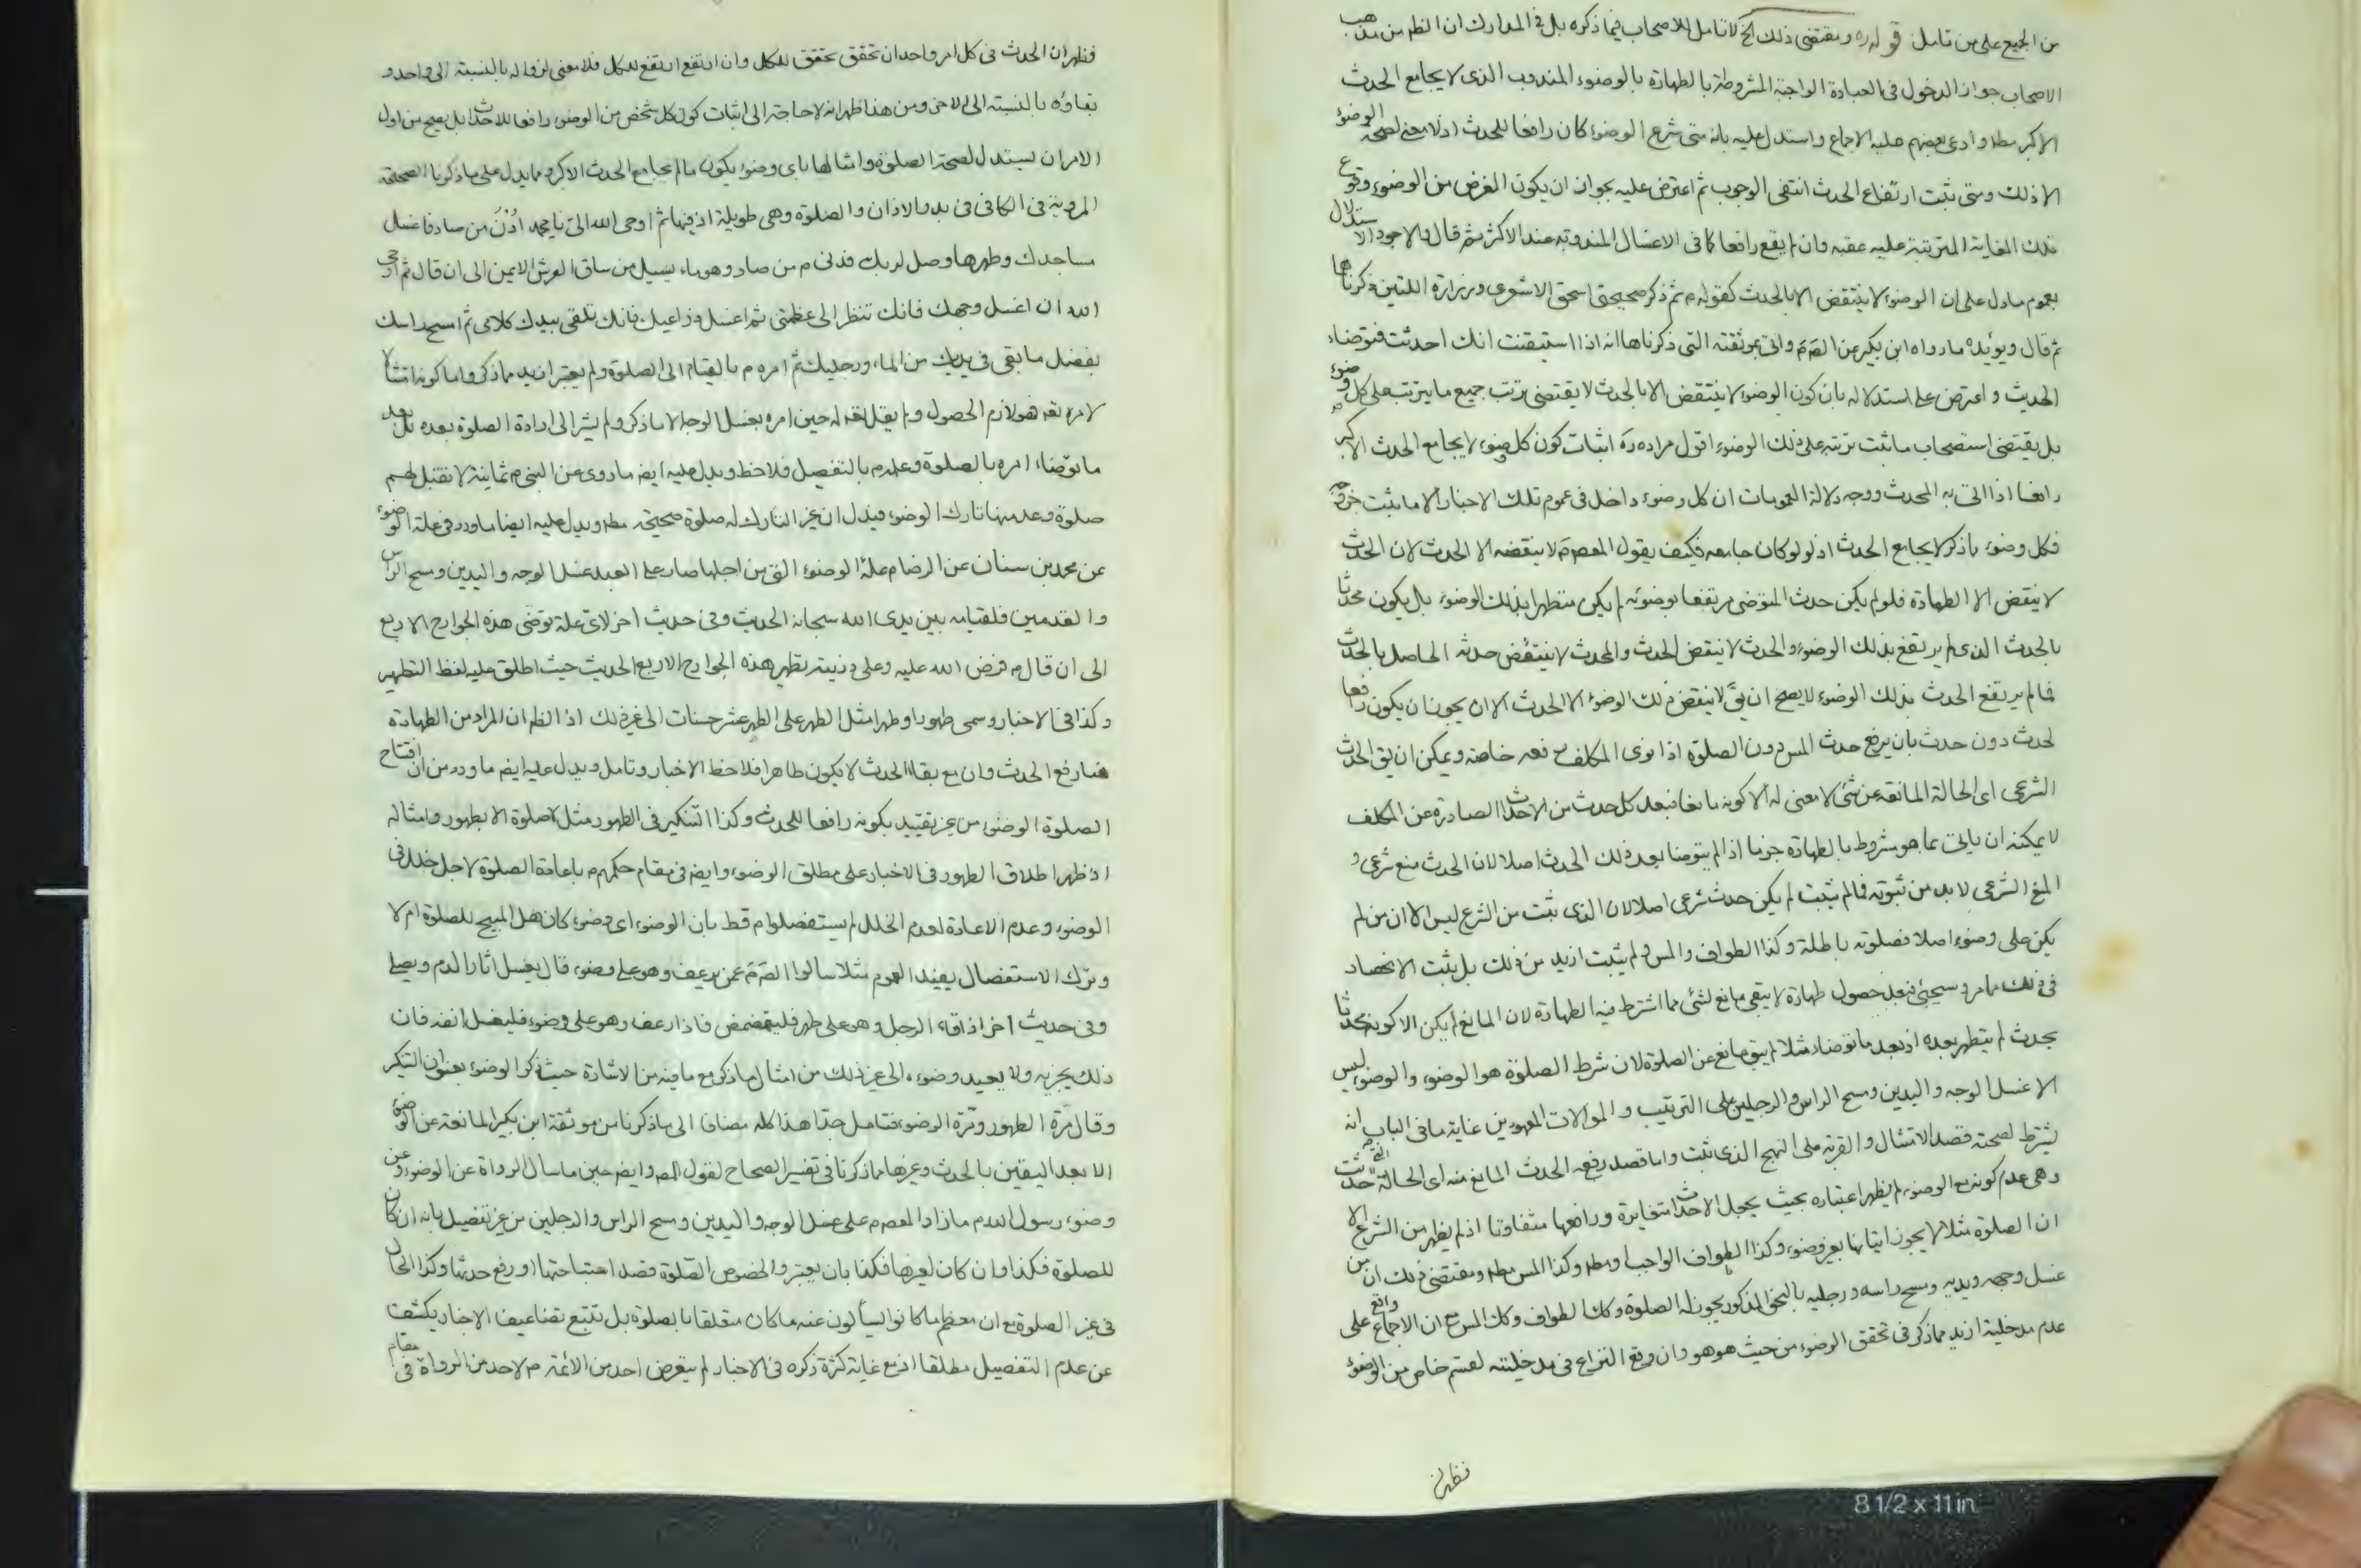 من الجميع على من تامل قوله ره ومقتضى ذلك الخ لا تامل للاصحاب فيما ذكره بل في المدارك ان الظم من مذهب
الاصحاب جواز الدخول في العبادة الواجبة المشروطة بالطهارة بالوضوء المندوب الذى لا يجامع الحدث
الاكبر مطم وادعى بعضهم عليه الاجماع واستدل عليه بانه متى شرع الوضوء كان رافعا للحدث اذ لا معنى لصحة الوضوء
الا ذلك ومتى ثبت ارتفاع الحدث انتفى الوجوب ثم اعترض عليه بجواز ان يكون الغرض من الوضوء وقوع
تلك الغاية المترتبة عليه عقبه وان لم يقع رافعا كما في الاغسال المندوبة عند الاكثر ثم قال والاجود الاستدلال
بعموم ما دل على ان الوضوء لا ينتقض الا بالحدث كقوله م ثم ذكر صحيحتى اسحق الاشعرى وزرارة اللتين ذكرناها
ثم قال ويؤيده ما رواه ابن بكير عن الصم واتى بموثقته التى ذكرناها انه اذا استيقنت انك احدثت فتوضاء
الحديث واعترض على استدلاله بان كون الوضوء لا ينتقض الا بالحدث لا يقتضى ترتب جميع ما يترتب على كل وضوء
بل يقتضى استصحاب ما ثبت ترتبه على ذلك الوضوء اقول مراده ره اثبات كون كل وضوء لا يجامع الحدث الاكبر
رافعا اذا اتى به المحدث ووجه دلالة العمومات ان كل وضوء داخل في عموم تلك الاخبار الا ما ثبت خروجه
فكل وضوء ما ذكر لا يجامع الحدث اذ لو كان جامعه فكيف يقول المعصوم لا ينقضه الا الحدث لان الحدث
لا ينقض الا الطهارة فلو لم يكن حدث المتوضى مرتفعا بوضوئه لم يكن متطهرا بذلك الوضوء بل يكون محدثا
بالحدث الذى لم يرتفع بذلك الوضوء والحدث لا ينقض الحدث والمحدث لا ينتقض حدثه الحاصل بالحدث
فما لم يرتفع الحدث بذلك الوضوء لا يصح ان يق لا ينقض ذلك الوضوء الا الحدث الا ان يجوز ان يكون رافعا
لحدث دون حدث بان يرفع حدث المس دون الصلوة اذا نوى المكلف رفعه خاصة ويمكن ان يق الحدث
الشرعى اى الحالة المانعة عن شئ لا معنى له الا كونه مانعا فبعد كل حدث من الاحداث الصادرة عن المكلف
لا يمكنه ان ياتى بما هو مشروط بالطهارة جزما اذا لم يتوضا بعد ذلك الحدث اصلا لان الحدث منع شرعى و
المنع الشرعى لا بد من ثبوته فما لم يثبت لم يكن حدث شرعى اصلا لان الذى ثبت من الشرع ليس الا ان من لم
يكن على وضوء اصلا فصلوته باطلة وكذا الطواف والمس ولم يثبت ازيد من ذلك بل يثبت الانحصار
في ذلك مما مر وسيجئ فبعد حصول طهارة لا يبقى مانع لشئ مما اشترط فيه الطهارة لان المانع لم يكن الا كونه محدثا
بحدث لم يتطهر بعده اذ بعد ما توضاء مثلا لم يبق مانع عن الصلوة لان شرط الصلوة هو الوضوء والوضوء ليس
الا غسل الوجه واليدين ومسح الراس والرجلين على الترتيب والموالات المعهودين غاية ما في الباب انه
يشترط لصحته قصد الامتثال والقربة على النهج الذى ثبت واما قصد رفعه الحدث المانع منه اى الحالة التى حدثت
وهى عدم كونه مع الوضوء لم يظهر اعتباره بحيث يجعل الاحداث متغايرة ورافعها متفاوتا اذ لم يظهر من الشرع الا
ان الصلوة مثلا لا يجوز اتيانها بغير وضوء وكذا الطواف الواجب مطم وكذا المس مطم ومقتضى ذلك ان من
غسل وجهه ويديه ومسح راسه ورجليه بالنحو المذكور يجوز له الصلوة وكك الطواف وكك المس مع ان الاجماع واقع على
عدم مدخلية ازيد مما ذكر في تحقق الوضوء من حيث هو هو وان وقع النزاع في مدخليته لقسم خاص من الوضوء
فظهر ان
فظهر ان الحدث في كل امر واحد ان تحقق تحقق للكل وان ارتفع ارتفع للكل فلا معنى لزواله بالنسبة الى واحد و
بقاؤه بالنسبة الى الاخر ومن هنا ظهر انه لا حاجة الى اثبات كون كل شخص من الوضوء رافعا للاحداث بل يصح من اول
الامر ان يستدل لصحة الصلوة وامثالها باى وضوء يكون ما لم يجامع الحدث الاكبر ومما يدل على ما ذكرنا الصحيحة
المروية في الكافى في بدو الاذان والصلوة وهى طويلة اذ فيها ثم اوحى الله الى يا محمد ادن من صاد فاغسل
مساجدك وطهرها وصل لربك فدنى م من صاد وهو ماء يسيل من ساق العرش الايمن الى ان قال ثم اوحى
الله ان اغسل وجهك فانك تنظر الى عظمتى ثم اغسل ذراعيك فانك تلقى بيدك كلامى ثم امسح راسك
بفضل ما بقى في يديك من الماء ورجليك ثم امره م بالقيام الى الصلوة ولم يعتبر ازيد مما ذكر واما كونه امتثالا
لامره تعه فهو لازم الحصول ولم يقل تعه له حين امره بغسل الوجه الا ما ذكر ولم يشر الى ارادة الصلوة بعده بل بعد
ما توضاء امره بالصلوة وعلمه م بالتفصيل فلاحظ ويدل عليه ايضا ما روى عن النبى م ثمانية لا تقبل لهم
صلوة وعد منها تارك الوضوء فيدل ان غير التارك له صلوة صحيحة مطم ويدل عليه ايضا ما ورد في علة الوضوء
عن محمد بن سنان عن الرضا م علة الوضوء التى من اجلها صار على العبد غسل الوجه واليدين ومسح الراس
والقدمين فلقيامه بين يدى الله سبحانه الحديث وفى حديث اخر لاى علة توضى هذه الجوارح الاربع
الى ان قال م فرض الله عليه وعلى ذريته تطهير هذه الجوارح الاربع الحديث حيث اطلق عليه لفظ التطهير
وكذا في الاخبار وسمى طهورا وطهرا مثل الطهر على الطهر عشر حسنات الى غير ذلك اذ الظم ان المراد من الطهارة
هنا رفع الحدث وان مع بقاء الحدث لا يكون طاهرا فلاحظ الاخبار وتامل ويدل عليه ايضا ما ورد من ان افتتاح
الصلوة الوضوء من غير تقييد بكونه رافعا للحدث وكذا التنكير في الطهور مثل لا صلوة الا بطهور وامثاله
اذ ظهر اطلاق الطهور في الاخبار على مطلق الوضوء وايضا في مقام حكمهم م باعادة الصلوة لاجل خلل في
الوضوء وعدم الاعادة لعدم الخلل لم يستفصلوا م قط بان الوضوء اى وضوء كان هل المبيح للصلوة ام لا
وترك الاستفصال يفيد العموم مثلا سالوا الصم عمن يرعف وهو على وضوء قال يغسل اثار الدم ويصلى
وفى حديث اخر اذا قاء الرجل وهو على طهر فليتمضمض فاذا رعف وهو على وضوء فليغسل انفه فان
ذلك يجزيه ولا يعيد وضوءه الى غير ذلك من امثال ما ذكر مع ما فيه من الاشارة حيث ذكر الوضوء بعنوان التنكير
وقال مرة الطهور ومرة الوضوء فتامل جدا هذا كله مضافا الى ما ذكرنا من موثقة ابن بكير المانعة عن الوضوء
الا بعد اليقين بالحدث وغيرها مما ذكرنا في تفسير الصحاح لقول المص وايضا حين ما سال الرواة عن الوضوء وعن
وضوء رسول الله م ما زاد المعصوم م على غسل الوجه واليدين ومسح الراس والرجلين من غير تفصيل بانه ان كان
للصلوة فكذا وان كان لغيرها فكذا بان يعتبروا لخصوص الصلوة قصد استباحتها او رفع حدثها وكذا الحال
في غير الصلوة مع ان معظم ما كانوا يسألون عنه ما كان متعلقا بالصلوة بل تتبع تضاعيف الاخبار يكشف
عن عدم التفصيل مطلقا اذ مع غاية كثرة ذكره في الاخبار لم يتعرض احد من الائمة م لاحد من الرواة في مقام
8 1/2 x 11 in.